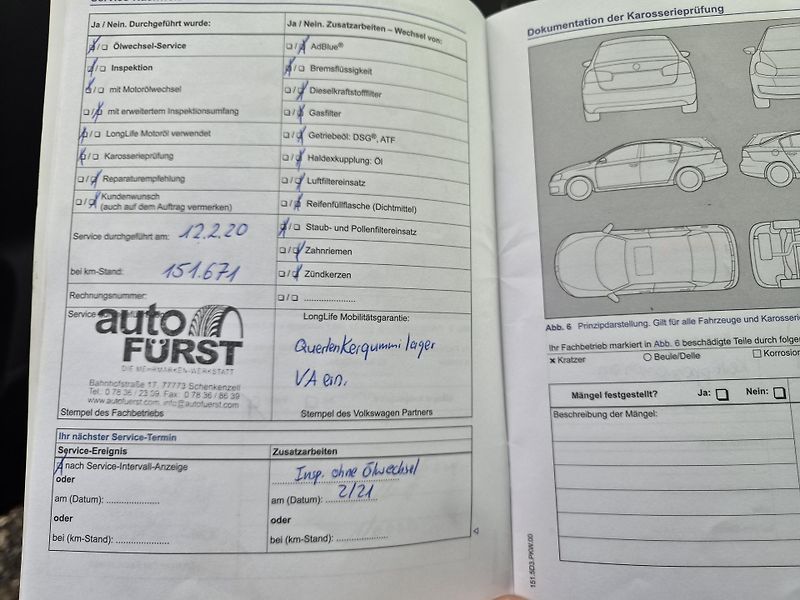 Ja / Nein. Durchgeführt wurde:
Ölwechsel-Service
Inspektion
mit Motorölwechsel
mit erweitertem Inspektionsumfang
LongLife Motoröl verwendet
Karosserieprüfung
Reparaturempfehlung
Kundenwunsch
(auch auf dem Auftrag vermerken)
Service durchgeführt am: 12.2.20
bei km-Stand: 151.671
Rechnungsnummer:
Ja / Nein. Zusatzarbeiten – Wechsel von:
AdBlue®
Bremsflüssigkeit
Dieselkraftstofffilter
Gasfilter
Getriebeöl: DSG®, ATF
Haldexkupplung: Öl
Luftfiltereinsatz
Reifenfüllflasche (Dichtmittel)
Staub- und Pollenfiltereinsatz
Zahnriemen
Zündkerzen
auto
FÜRST
DIE MEHRMARKEN-WERKSTATT
Bahnhofstraße 17, 77773 Schenkenzell
Tel. 0 78 36 / 23 59, Fax: 0 78 36 / 86 39
www.autofuerst.com, info@autofuerst.com
Stempel des Fachbetriebs
LongLife Mobilitätsgarantie:
Querlenkergummilager
VA ein.
Stempel des Volkswagen Partners
Ihr nächster Service-Termin
Service-Ereignis
nach Service-Intervall-Anzeige
oder
am (Datum):
oder
bei (km-Stand):
Zusatzarbeiten
Insp. ohne Ölwechsel
am (Datum): 2/21
oder
bei (km-Stand):
Dokumentation der Karosserieprüfung
Abb. 6 Prinzipdarstellung. Gilt für alle Fahrzeuge und Karosserie
Ihr Fachbetrieb markiert in Abb. 6 beschädigte Teile durch folge
× Kratzer
Beule/Delle
Korrosion
Mängel festgestellt? Ja: Nein:
Beschreibung der Mängel:
151.5D3.PKW.00